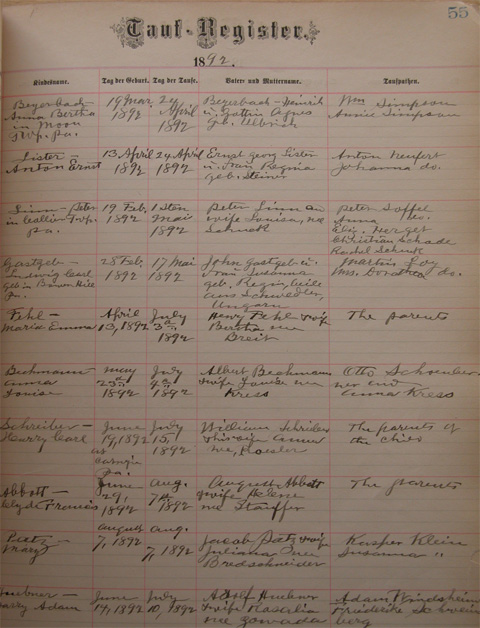 55
Tauf-Register.
1892.
Kindesname. Tag der Geburt. Tag der Taufe. Vater- und Muttername. Taufpathen.
Beyerbach- 19 Mar. 24 Beyerbach-Heinrich Wm Simpson
Anna Bertha 1892 April u. Gattin Agnes Annie Simpson
in Moon 1892 gb. Ulbrich
Twp. Pa.
Lister 13 April 24 April Ernst Georg Lister Anton Neufert
Anton Ernst 1892 1892 u. Frau Regina Johanna do.
geb. Steiner
Linn-Peter 19 Feb. 1 Sten Peter Linn and Peter Soffel
in Collier Twp. 1892 Mai wife Louisa, nee Anna do.
Pa. 1892 Schuck Eliz. Herget
Christian Schade
Rachel Schuck
Gastgeb- 28 Feb. 17 Mai John Gastgeb u. Martin Loy
Ludwig Carl 1892 1892 Frau Susanna Mrs. Dorothea do.
geb in Bower Hill geb. Regin, beide
Pa. aus Schwedler,
Ungarn
Fehl- April July Henry Fehl & wife The parents
Maria Emma 13, 1892 3rd Bertha nee
1892 Breit
Beckmann- May July Albert Beckmann Otto
Anna 23rd 4th & wife Louise nee and
Louise 1892 1892 Kress Anna Kress
Schreiber- June July William Schreiber The parents of
Henry Carl 19, 1892 15, & his wife Anna the child
at 1892 nee, Roesler
Carnegie
Pa.
Abbott- June Aug. August Abbott The parents
Clyde Francis 29, 7th & wife Helene
1892 1892 nee Stauffer
Paetz- August Aug. Jacob Paetz & wife Kasper Klein
Mary 7, 1892 7, 1892 Juliana nee Susanna "
Bredschneider
Huebner- June July Adolf Huebner Adam Windsheim
Harry Adam 14, 1892 10, 1892 & wife Rosalia Friederike Schwein
nee berg